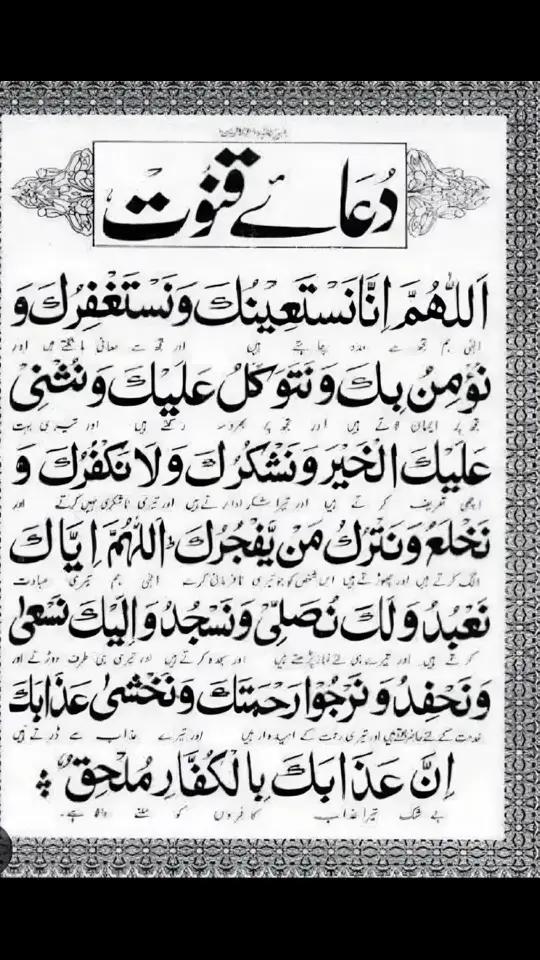 دُعَائے قنُوت
اَللّٰهُمَّ اِنَّا نَسْتَعِيْنُكَ وَنَسْتَغْفِرُكَ وَ
الٰہی ہم تجھ سے مدد چاہتے ہیں اور تجھ سے معافی مانگتے ہیں اور
نُؤْمِنُ بِكَ وَنَتَوَكَّلُ عَلَيْكَ وَنُثْنِيْ
تجھ پر ایمان لاتے ہیں اور تجھ پر بھروسہ رکھتے ہیں اور تیری بہت
عَلَيْكَ الْخَيْرَ وَنَشْكُرُكَ وَلَا نَكْفُرُكَ وَ
اچھی تعریف کرتے ہیں اور تیرا شکر ادا کرتے ہیں اور تیری ناشکری نہیں کرتے اور
نَخْلَعُ وَنَتْرُكُ مَنْ يَّفْجُرُكَ اَللّٰهُمَّ اِيَّاكَ
الگ کرتے ہیں اور چھوڑتے ہیں اس شخص کو جو تیری نافرمانی کرے الٰہی ہم تیری عبادت
نَعْبُدُ وَلَكَ نُصَلِّيْ وَنَسْجُدُ وَاِلَيْكَ نَسْعٰى
کرتے ہیں اور تیرے ہی لئے نماز پڑھتے ہیں اور سجدہ کرتے ہیں اور تیری ہی طرف دوڑتے اور
وَنَحْفِدُ وَنَرْجُوْا رَحْمَتَكَ وَنَخْشٰى عَذَابَكَ
خدمت کے لئے حاضر ہوتے ہیں اور تیری رحمت کے امیدوار ہیں اور تیرے عذاب سے ڈرتے ہیں
اِنَّ عَذَابَكَ بِالْكُفَّارِ مُلْحِقٌ
بے شک تیرا عذاب کافروں کو ملنے والا ہے۔